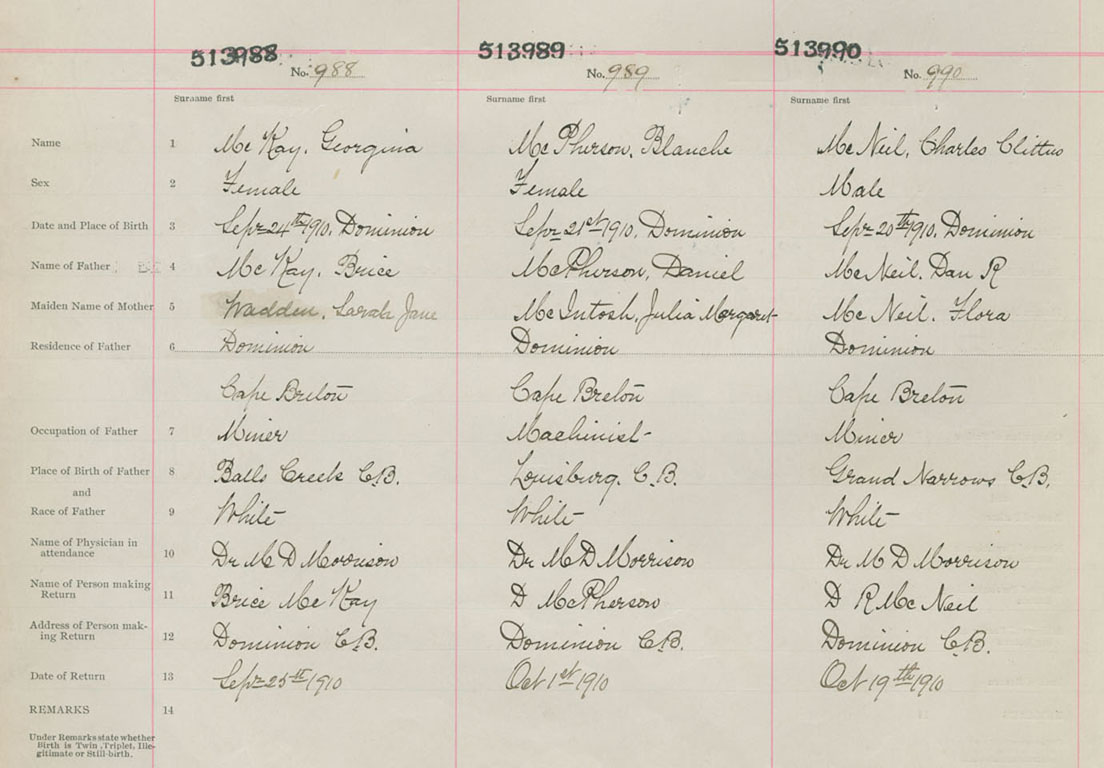 513988 513989 513990
No. 988 No. 989 No. 990
Surname first Surname first Surname first
Name 1 Mc Kay, Georgina McPherson, Blanche McNeil, Charles Clittus
Sex 2 Female Female Male
Date and Place of Birth 3 Sepr 24th 1910, Dominion Sepr 21st 1910, Dominion Sepr 20th 1910, Dominion
Name of Father 4 Mc Kay, Brice McPherson, Daniel McNeil, Dan R
Maiden Name of Mother 5 Wadden, Sarah Jane McIntosh, Julia Margaret Mc Neil, Flora
Residence of Father 6 Dominion Dominion Dominion
Cape Breton Cape Breton Cape Breton
Occupation of Father 7 Miner Machinist Miner
Place of Birth of Father 8 Balls Creek C.B. Louisburg, C.B. Grand Narrows C.B.
and
Race of Father 9 White White White
Name of Physician in
attendance 10 Dr M D Morrison Dr M D Morrison Dr M D Morrison
Name of Person making
Return 11 Brice Mc Kay D McPherson D R Mc Neil
Address of Person mak-
ing Return 12 Dominion C.B. Dominion C.B. Dominion C.B.
Date of Return 13 Sepr 25th 1910 Oct 1st 1910 Oct 19th 1910
REMARKS 14
Under Remarks state whether
Birth is Twin, Triplet, Ille-
gitimate or Still-birth.